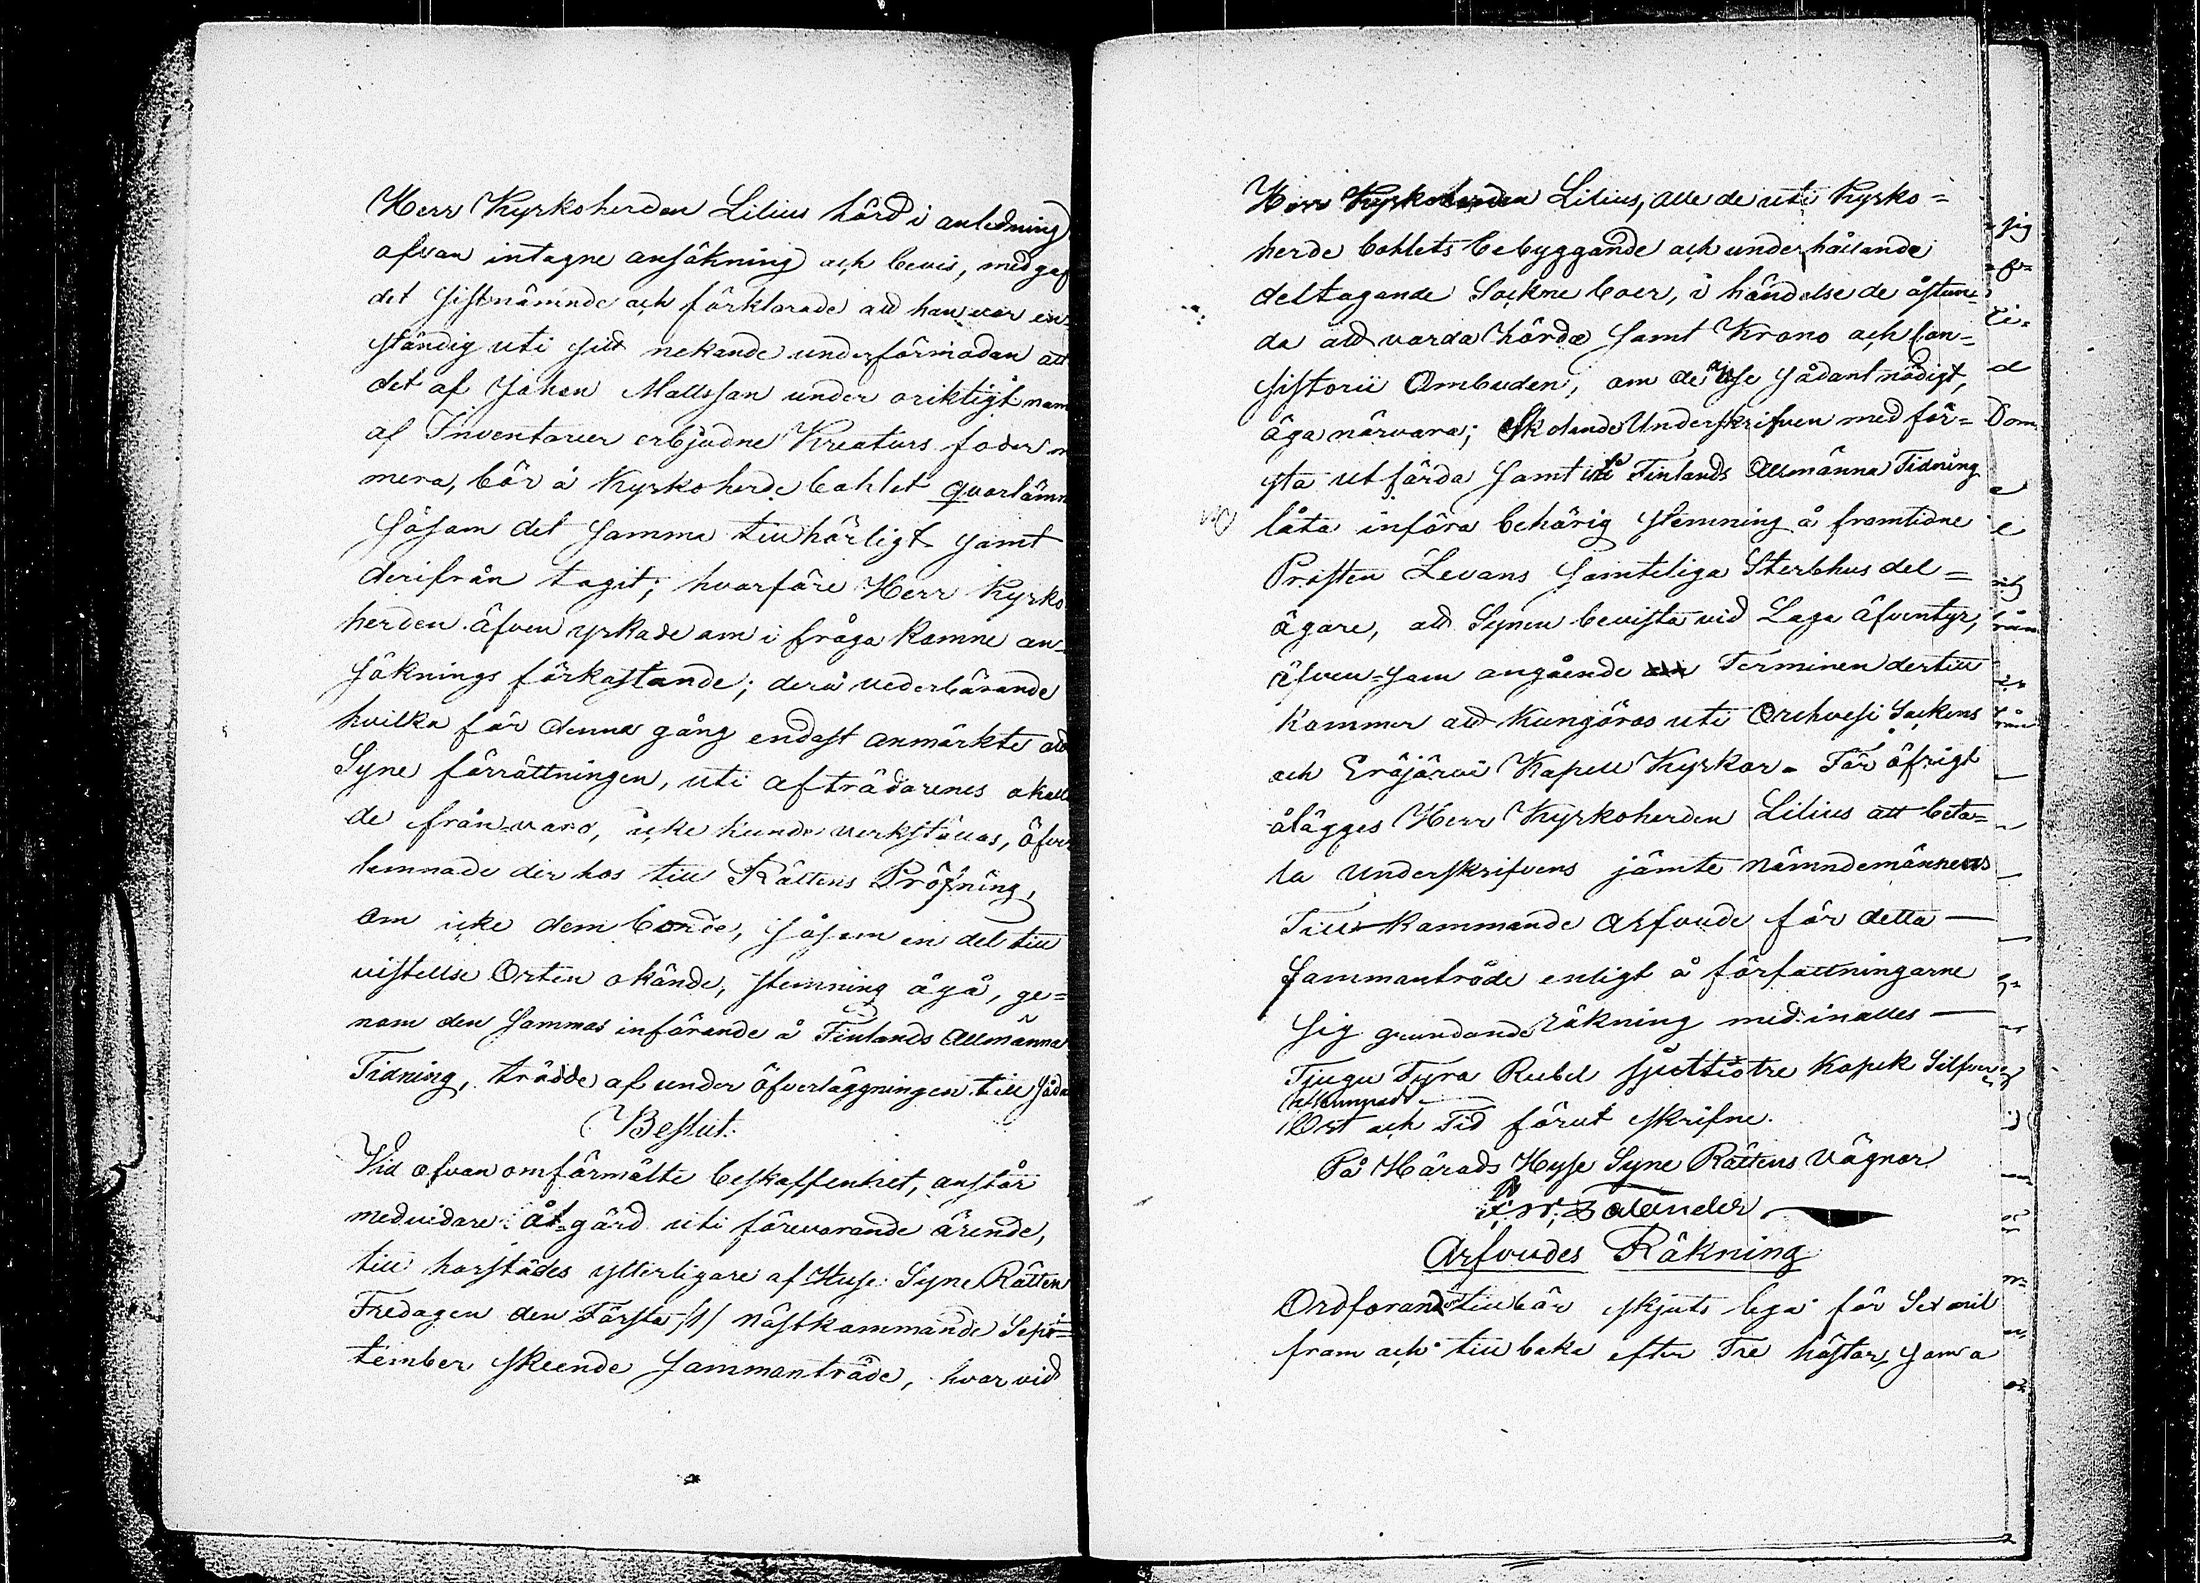 Herr Kyrkoherden Lilius hörd i anledning
ofvan intagne ansökning och bevis, medgaf
det sistnämnde och förklarade att han var en-
ständig uti sitt nekande under förmodan att
det af Johan Mattsson under oriktigt nam
af Inventarier erbjudne Kreaturs foder m
mera, bör å Kyrkoherde bohlet qvarlämn
såsom det samma tillhörligt samt
derifrån tagit; hvarföre Herr Kyrko
herden äfven yrkade om i fråga komne an-
söknings förkastande; derå vederbörande
hvilka för denna gång endast anmärkte att
Syne förrättningen, uti afträdarenes okall
de från-varo, icke kunde verkställas, öfver
lemnade der hos till Rättens Pröfning,
om icke dem borde, såsom en del till
vistelse Orten okände, stemning ågå, ge=
nom den sammas införande å Finlands Allmänna
Tidning, trädde af under öfverläggningen till såda
Beslut.
Vid ofvan omförmälte beskaffenhet, anstår
med vidare åt-gärd uti förevarande ärende,
till härstädes ytterligare af Huse Syne Rätten
Fredagen den Första /1/ nästkommande Sep=
tember skeende sammanträde, hvar vid
Herr Kyrkoherden Lilius, alle de uti Kyrko=
herde bohlets bebyggande och underhållande
deltagande Sockne boer, i händelse de åstun-
da att varda hörde samt Krono och Con=
sistorii Ombuden, om de se sådant nödigt,
äga närvara; Skolande Underskrifven med för=
sta utfärda samt i Finlands Allmänna Tidning
låta införa behörig stemning å framlidne
Prosten Levans samteliga Sterbhus del=
ägare, att Synen bevista vid Laga äfventyr,
äfven-som angående Terminen dertill
kommer att kungöras uti Orihvesi Sockens
och Eräjärvi Kapell Kyrkor. För öfrigt
ålägges Herr Kyrkoherden Lilius att beta=
la Underskrifvens jämte nämndemännens
Till kommande Arfvode för detta —
sammanträde enligt å författningarne
sig grundande räkning med inalles —
Tjugu Fyra Rubel sjuttiotre Kopek Silfver
Ort och Tid förut skrifne.
På Härads Husse Syne Rättens vägnar
Arfvodes Räkning
Ordförande tillbör skjuts lega för Sex mil
fram och till baka efter Tre hästar, som a